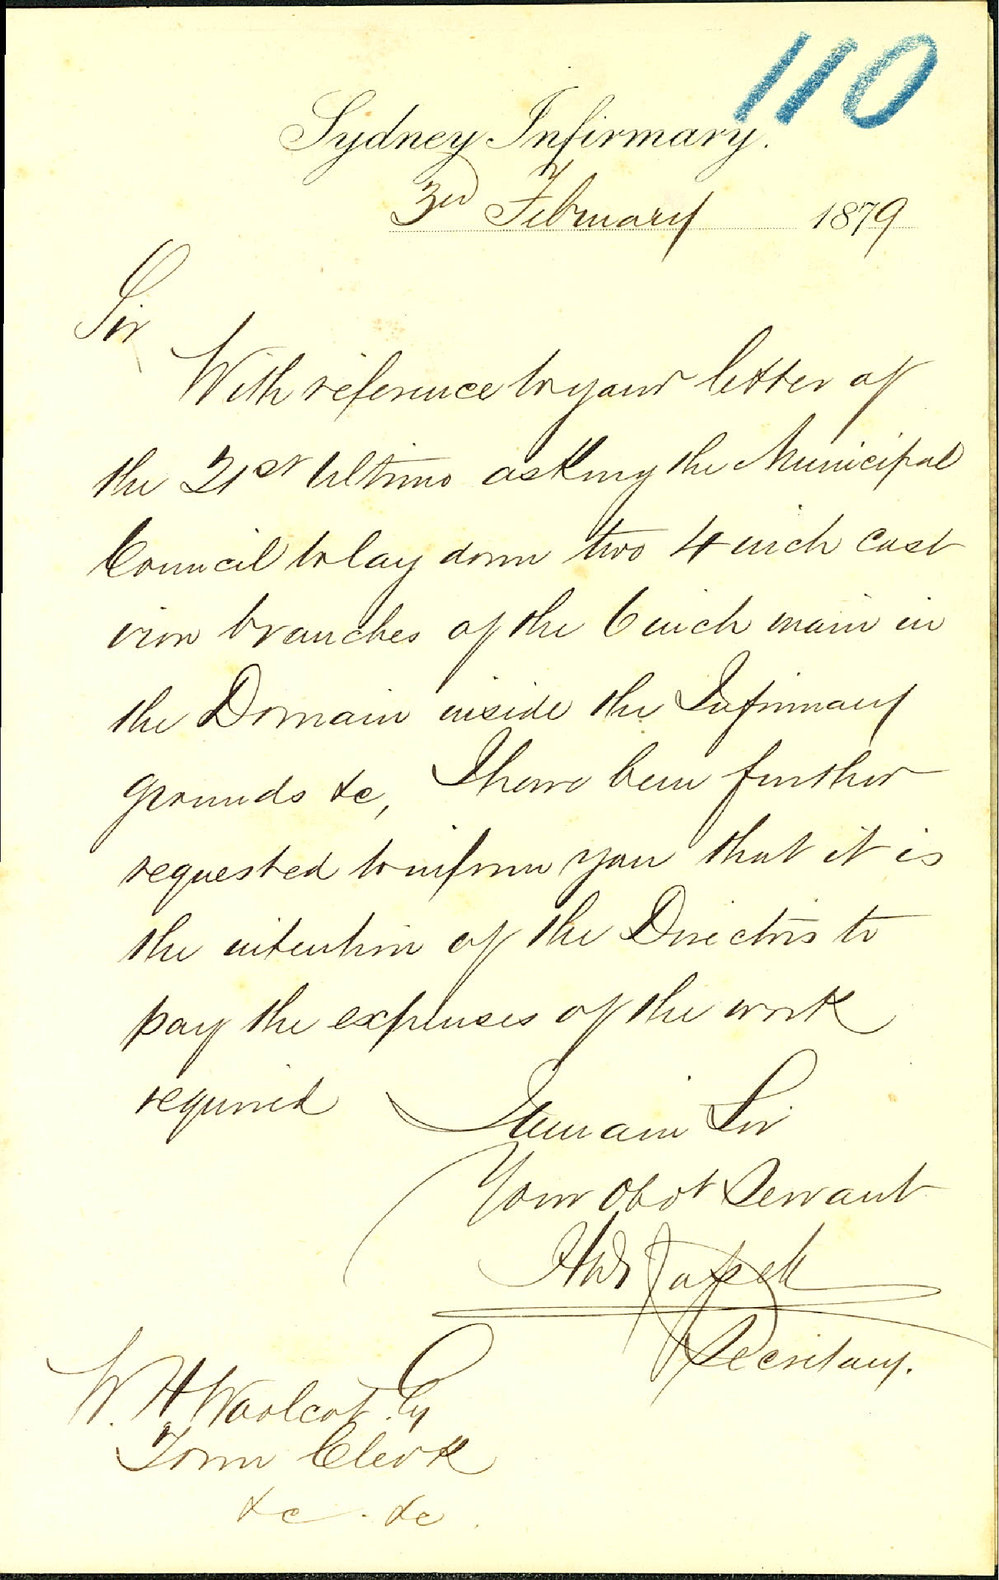 110
Sydney Infirmary.
3rd February 1879
Sir
With reference to your letter of
the 21st Ultimo asking the Municipal
Council to lay down two 4 inch cast
iron branches of the 6 inch main in
the Domain inside the Infirmary
grounds &c, I have been further
requested to inform you that it is
the intention of the Directors to
pay the expenses of the work
required
I remain Sir
Your obdt Servant
Secretary.
W. H Woolcot Esq
Town Clerk
&c. &c.